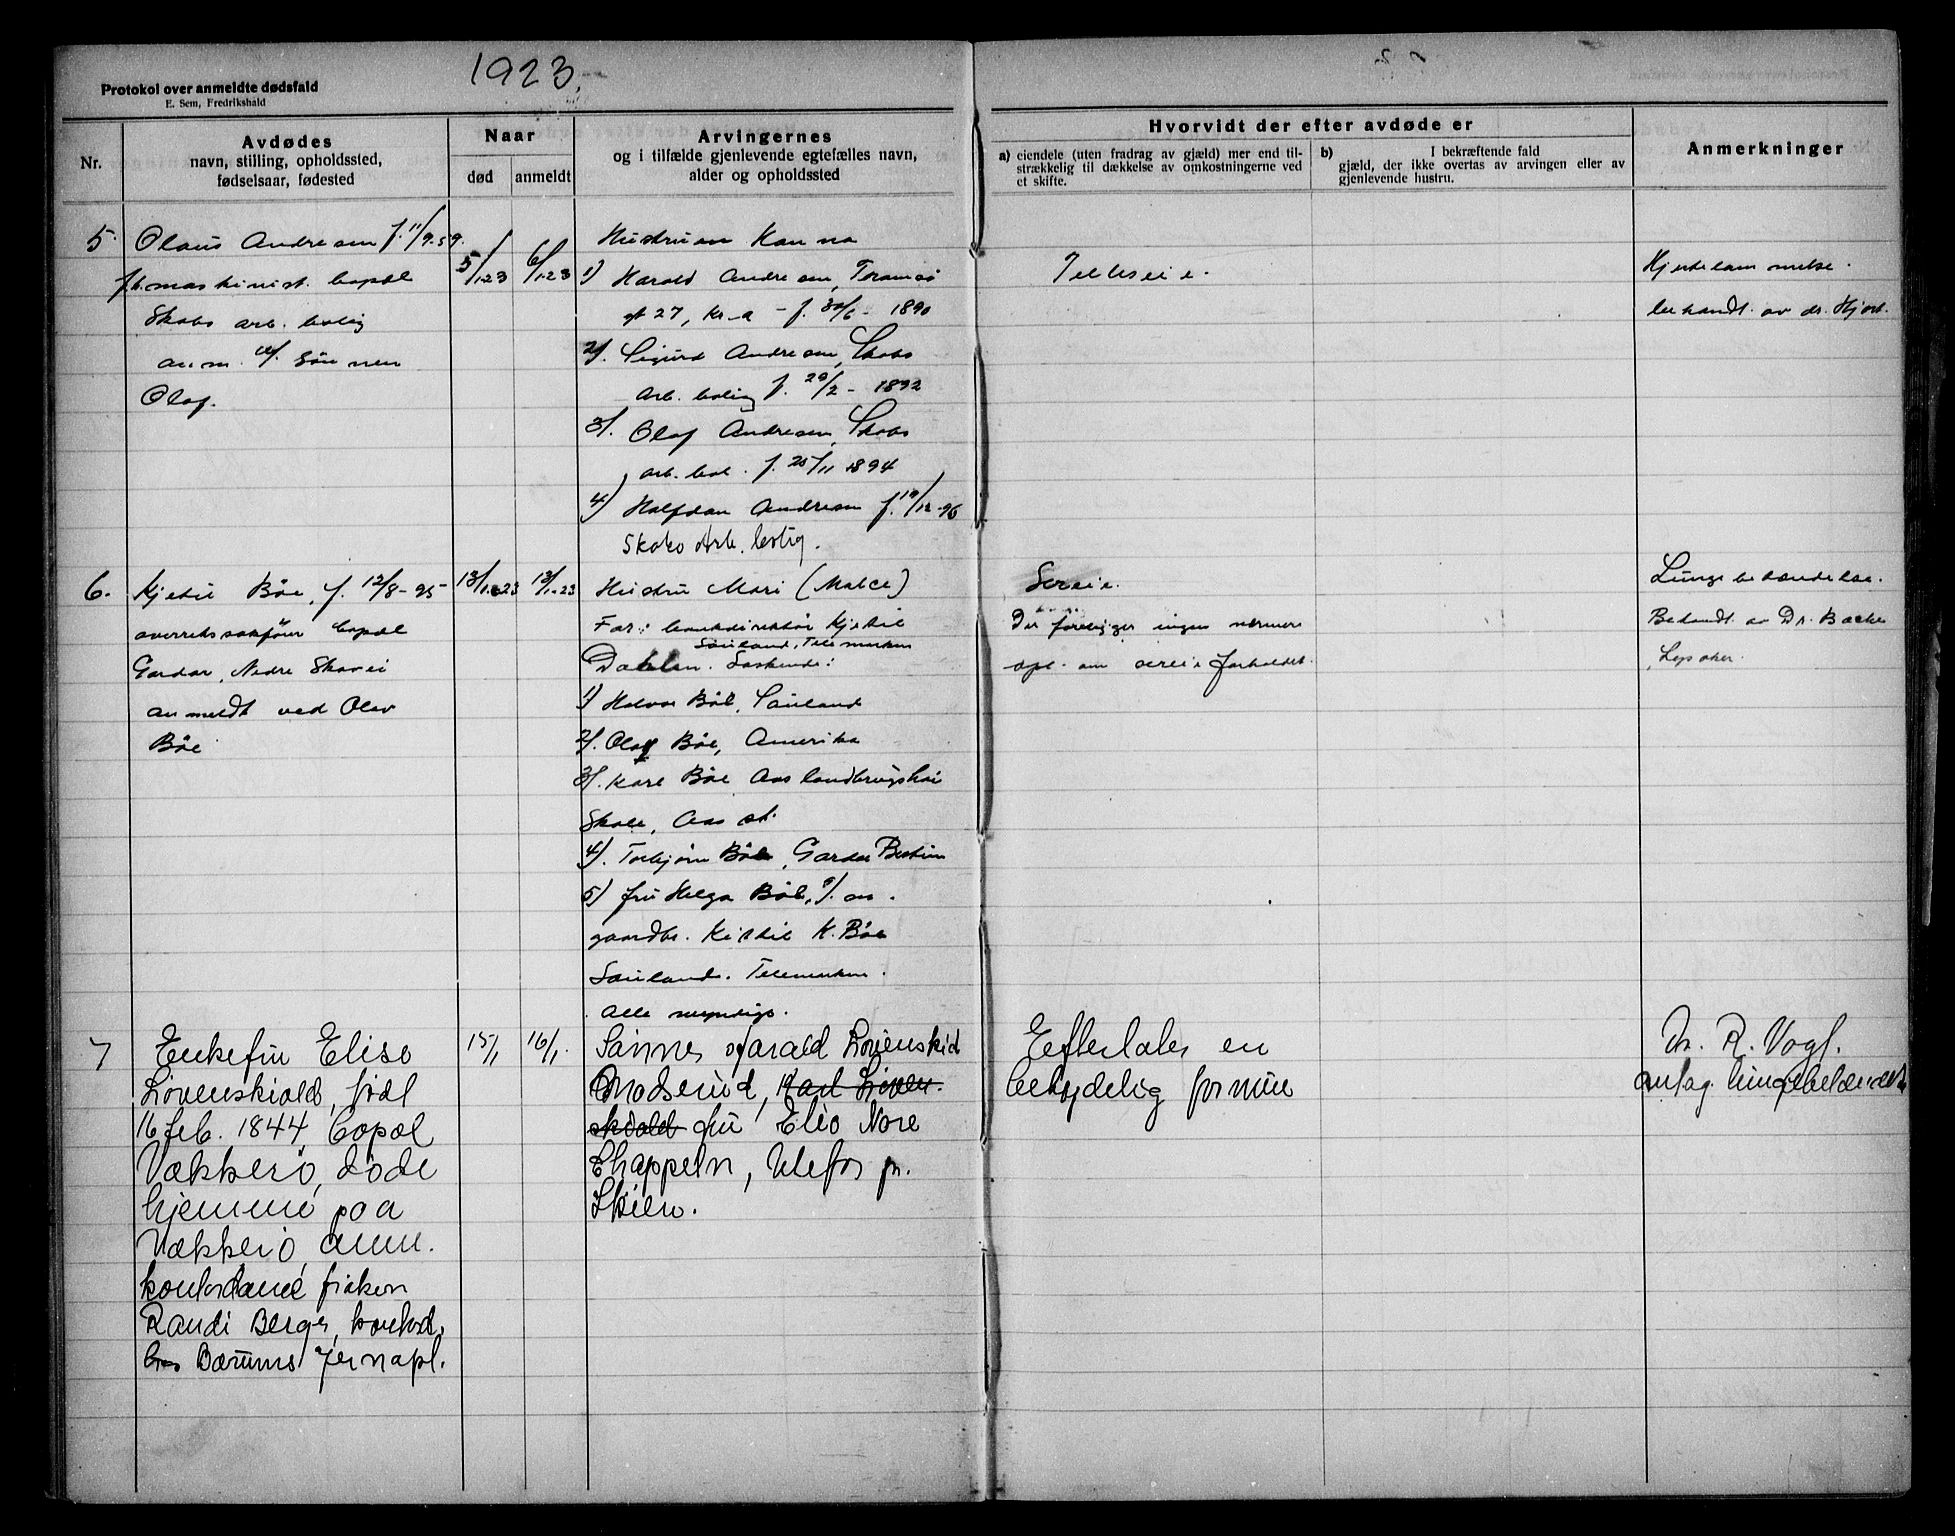 1923.
Protokol over anmeldte dødsfald
E. Sem, Fredrikshald
Nr.
Avdødes
navn, stilling, opholdssted,
fødselsaar, fødested
Naar
død
anmeldt
Arvingernes
og i tilfælde gjenlevende egtefælles navn,
alder og opholdssted
Hvorvidt der efter avdøde er
a) eiendele (uten fradrag av gjæld) mer end til-
strækkelig til dækkelse av omkostningerne ved
et skifte.
b) I bekræftende fald
gjæld, der ikke overtas av arvingen eller av
gjenlevende hustru.
Anmerkninger
5.
Olaus Andresen f. 11/9.59.
f.h. maskinist. bopæl
Skabo arb. bolig
anm. v/. Sønnen
Olaf.
5/1.23
6/1.23
Hustruen Hanna
1) Harald Andresen, Tromsø
gt 27, Kr.a - f. 30/6 - 1890
2/. Sigurd Andresen, Skabo
Arb. bolig f. 29/2 - 1892
3/. Olaf Andresen, Skabo
arb. bol. f. 25/11 1894
4) Halfdan Andresen f. 19/12-96
Skabo Arb. bolig.
Fælleseie.
Hjertelammelse.
behandl. av dr. Hjort.
6.
Kjetil Bøe, f. 12/8-95-
overretssakfører bopæl
Gardar, Nedre Skovei
anmeldt ved Olav
Bøe
13/1.23
13/1.23
Hustru Mari (Malce)
Far: bankdirektør Kjetil
Sauland, Telemarken
Dahlen. Søskende:
1) Halvor Bøe, Sauland
2/. Olaf Bøe, Amerika
3/. Kare Bøe Aas landbrugshøi
Skole, Aas st.
4). Torbjørn Bøe, Gardar Bestum
5) fru Helga Bøe,
gaardbr. Kjetil K. Bøe
Sauland. Telemarken.
Alle myndige.
Særeie.
Der foreligger ingen nærmere
opl. om særeieforholdet.
Lungebetændelse.
Behandl. av Dr. Backe
Lysaker.
7
Enkefru Elise
Løvenskiold, født
16 feb. 1844, bopæl
Vækkerø, døde
hjemme paa
Vækkerø, anm.
kontordame frøken
Randi Berger, kontord.
hos Bærums Jernapl.
15/1
16/1.
Sønnes Harald Løvenskiold
Moderud, Karl Løven-
skiold fru Elie Nore
Chappeln, Ulefos pr.
Skien.
Efterlater en
betydelig formue
Dr. R. Vogt.
antag. lungebetændelse